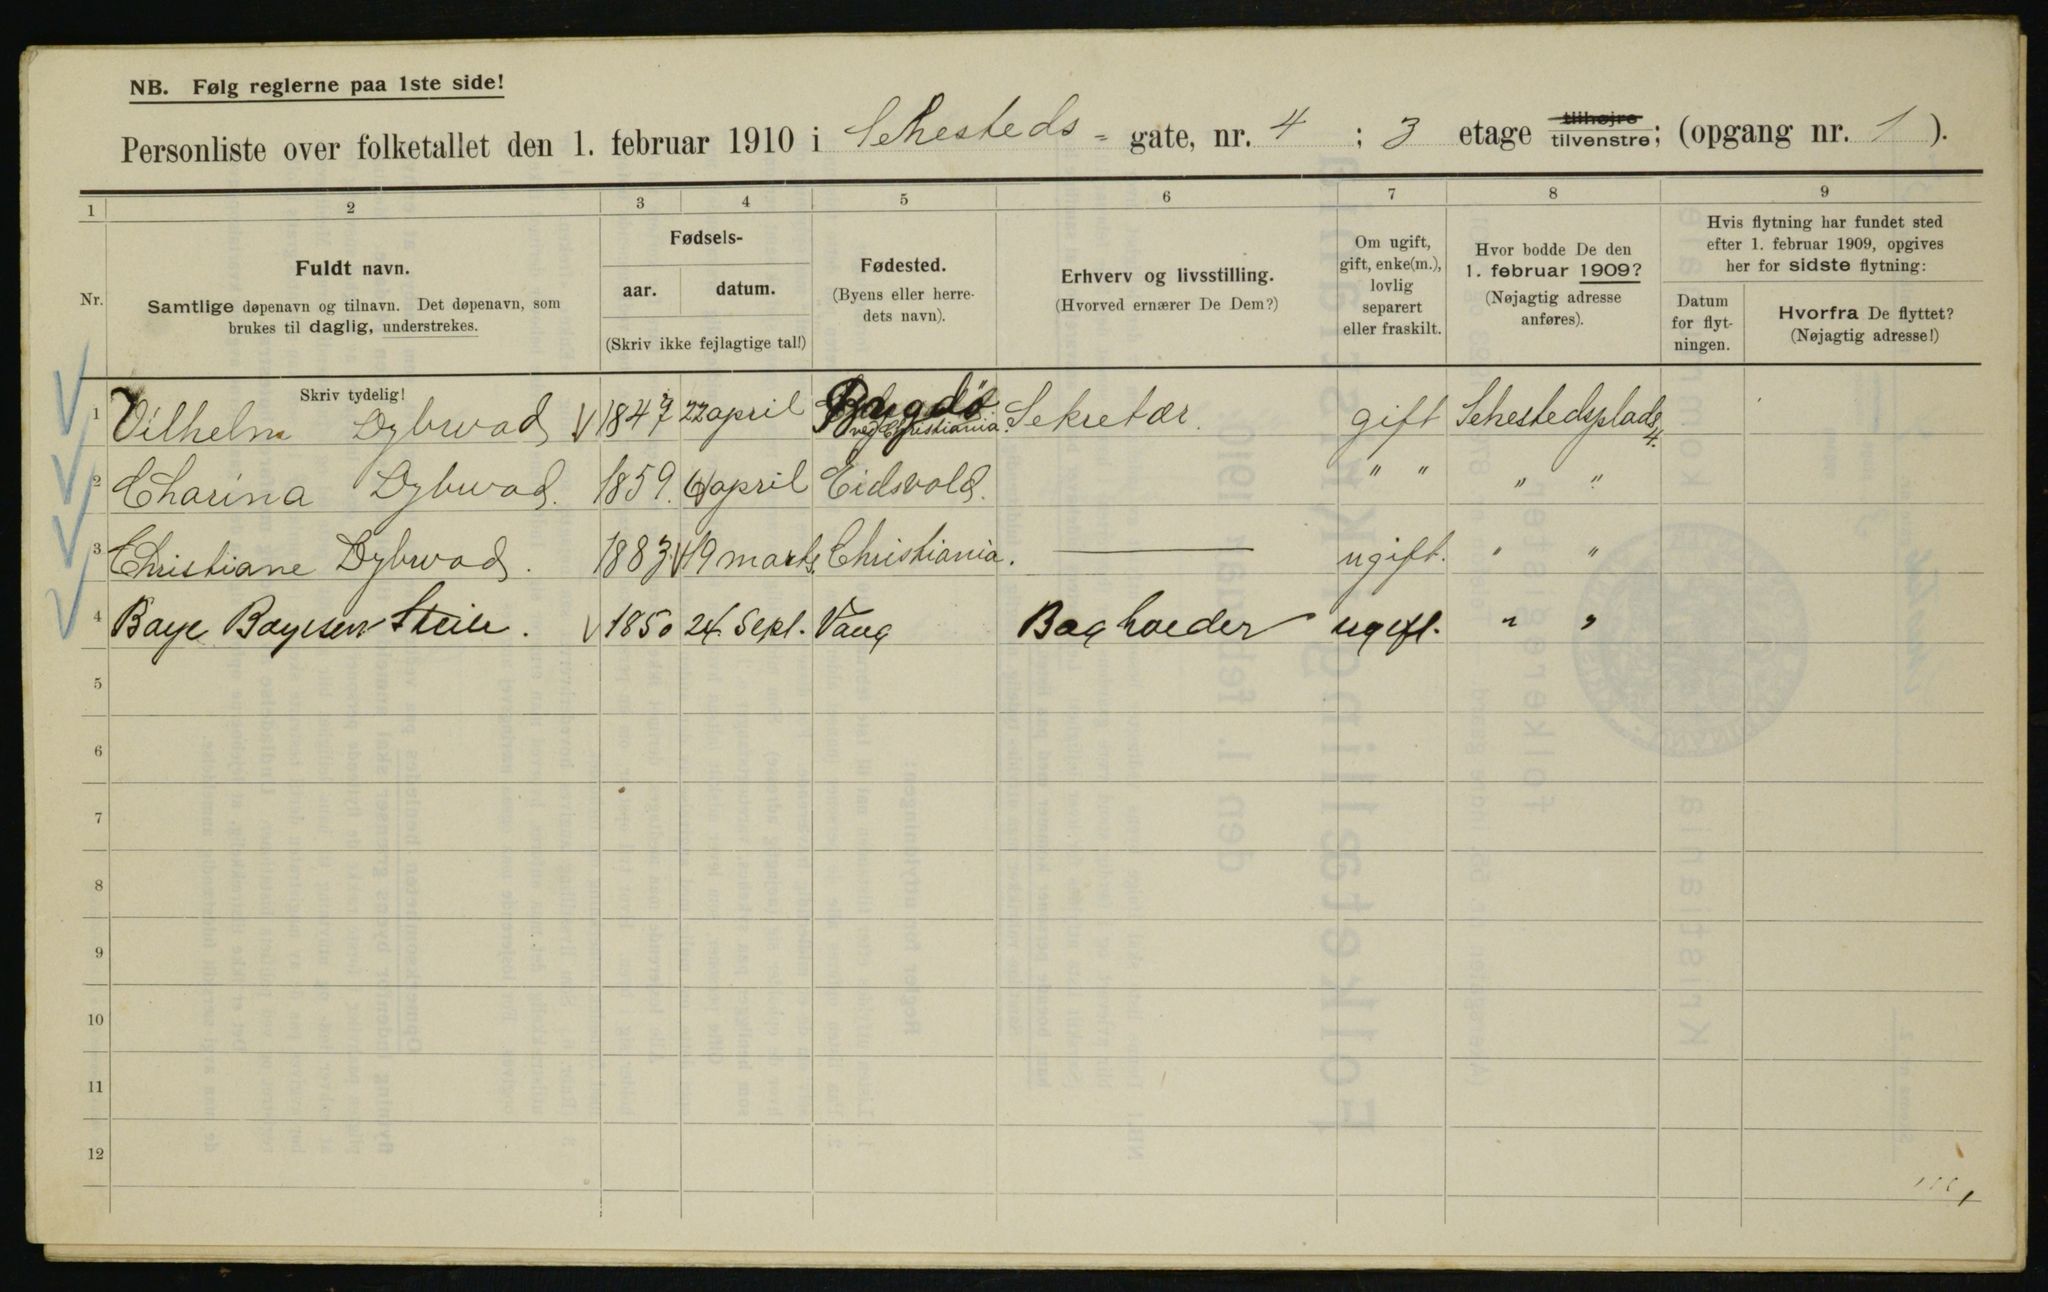 NB. Følg reglerne paa 1ste side!
Personliste over folketallet den 1. februar 1910 i Sehesteds - gate, nr. 4 ; 3 etage tilhøjre tilvenstre; (opgang nr. 1 ).
1 2 3 4 5 6 7 8 9
Nr.
Fuldt navn.
Samtlige døpenavn og tilnavn. Det døpenavn, som
brukes til daglig, understrekes.
Fødsels-
aar. datum.
(Skriv ikke fejlagtige tal!)
Fødested.
(Byens eller herre-
dets navn).
Erhverv og livsstilling.
(Hvorved ernærer De Dem?)
Om ugift,
gift, enke(m.),
lovlig
separert
eller fraskilt.
Hvor bodde De den
1. februar 1909?
(Nøjagtig adresse
anføres).
Hvis flytning har fundet sted
efter 1. februar 1909, opgives
her for sidste flytning:
Datum
for flyt-
ningen.
Hvorfra De flyttet?
(Nøjagtig adresse!)
Skriv tydelig!
1 Vilhelm Dybwad 1847 22 april Bygdö ved Christiania. Sekretær. gift Sehestedsplads 4.
2 Charina Dybwad. 1859. 6 april Eidsvold. " " " "
3 Christiane Dybwad. 1883 19 marts. Christiania. — ugift. " "
4 Baye Boyesen . 1850 24 Sept. Vang Bagholder ugift. " "
5
6
7
8
9
10
11
12